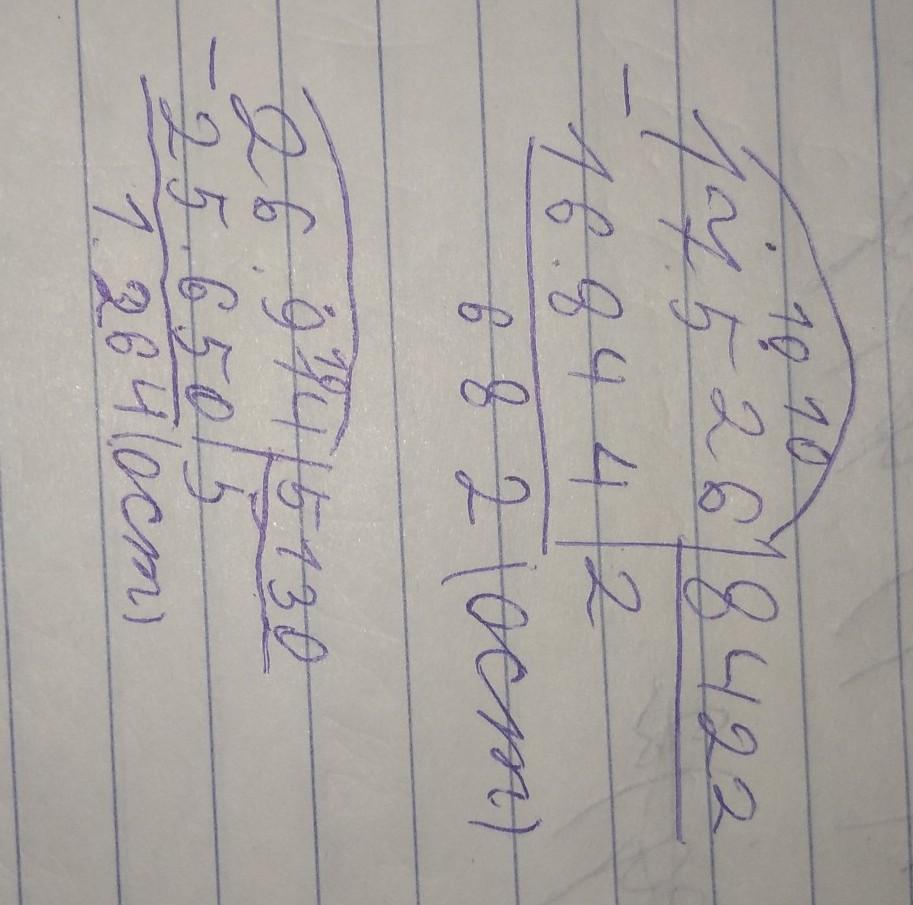 10 10
17526 8422
- 16.844 2
682 (ост)
10
26.914 5130
- 25.650 5
1.264 (ост)